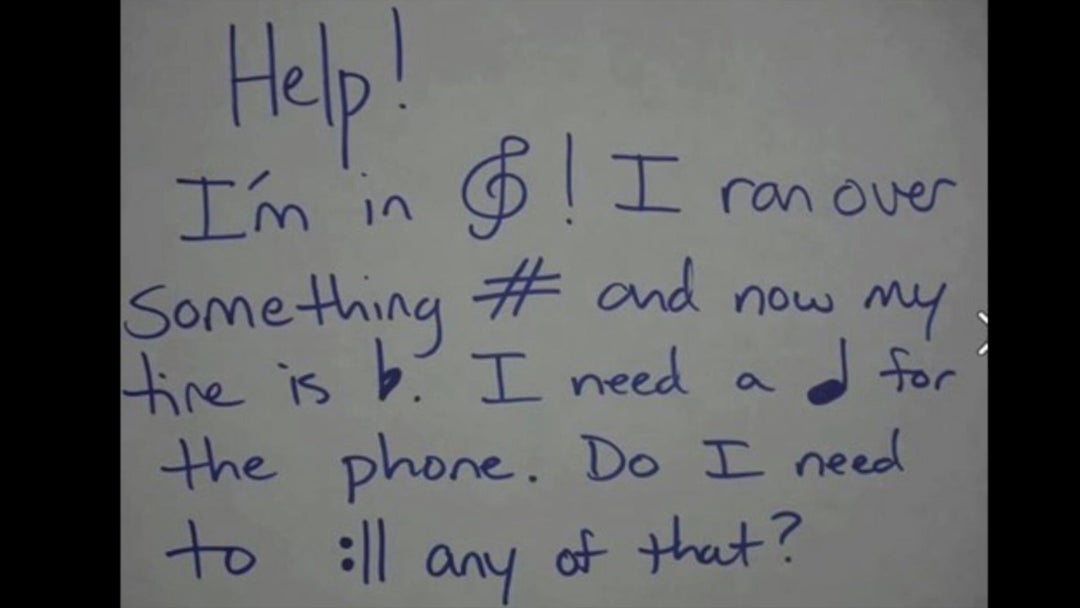 Help!
I'm in 𝄞! I ran over
Something # and now my
tire is ♭. I need a ♩ for
the phone. Do I need
to :|| any of that?